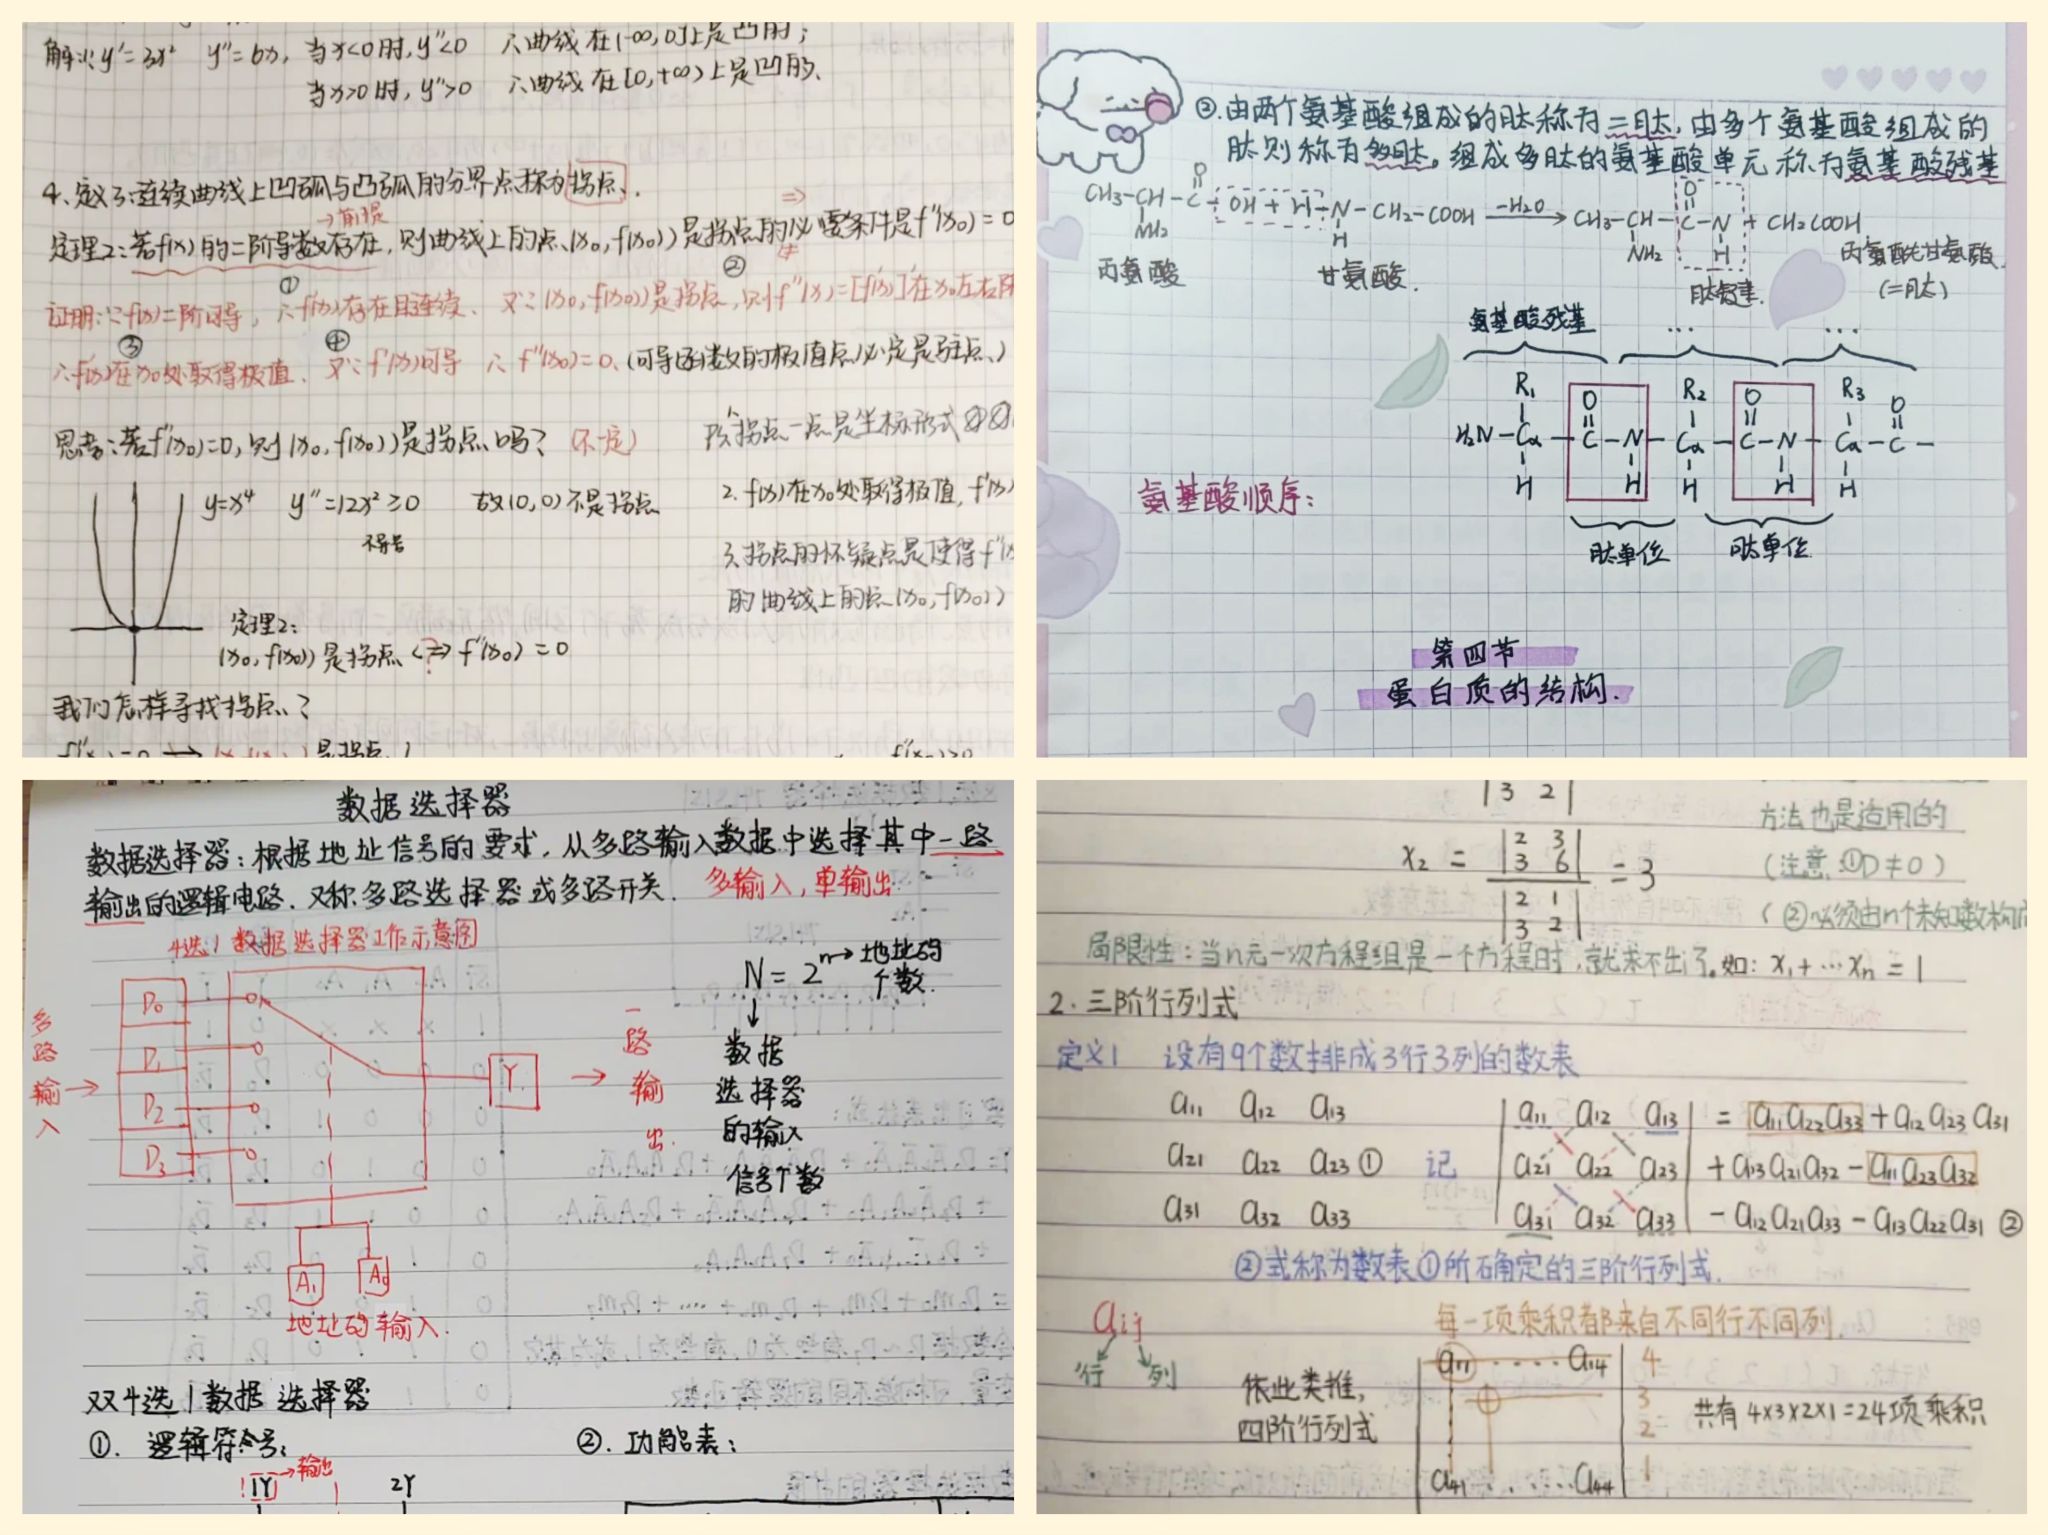 解:∵y'=3x² y''=6x, 当x<0时,y''<0 ∴曲线在(-∞,0]上是凸的;
当x>0时,y''>0 ∴曲线在[0,+∞)上是凹的.
4、定义3:连续曲线上凹弧与凸弧的分界点称为拐点.
→前提
定理2:若f(x)的二阶导数存在,则曲线上的点(x₀,f(x₀))是拐点的必要条件是f''(x₀)=0
证明:∵f(x)二阶可导, ∴f'(x)存在且连续、又∵(x₀,f(x₀))是拐点,则f''(x)=[f'(x)]'在x₀左右
∴f'(x)在x₀处取得极值、又∵f'(x)可导 ∴f''(x₀)=0、(可导函数的极值点必定是驻点、)
思考:若f''(x₀)=0,则(x₀,f(x₀))是拐点吗? (不一定)
y=x⁴ y''=12x²≥0 故(0,0)不是拐点
定理2:
(x₀,f(x₀))是拐点 ⇒ f''(x₀)=0
我们怎样寻找拐点?
拐点一点是坐标形式
2.f(x)在x₀处取得极值,f'(x)
3.拐点的怀疑点是使得f''(x
的曲线上的点(x₀,f(x₀))
②.由两个氨基酸组成的肽称为二肽,由多个氨基酸组成的
肽则称为多肽。组成多肽的氨基酸单元称为氨基酸残基
CH₃-CH-C-OH+H-N-CH₂-COOH -H₂O→ CH₃-CH-C-N+CH₂COOH
O O
NH₂ H NH₂ H
丙氨酸 甘氨酸. 肽键. 丙氨酰甘氨酸.
(二肽)
氨基酸残基 … …
R₁ O R₂ O R₃ O
H₂N-Cα-C-N-Cα-C-N-Cα-C-
H H H H H
氨基酸顺序:
肽单位 肽单位
第四节
蛋白质的结构.
数据选择器
数据选择器:根据地址信号的要求,从多路输入数据中选择其中一路
输出的逻辑电路.又称多路选择器或多路开关. 多输入,单输出
4选1数据选择器工作示意图
多路输入→
D₀
D₁
D₂
D₃
Y
→一路输出.
A₁ A₀
地址码输入.
N=2ⁿ→地址码
个数.
↓
数据
选择器
的输入
信号个数
双4选1数据选择器
①.逻辑符号: ②.功能表:
1Y→输出 2Y
|3 2|
x₂=
|2 3|
|3 6|
=3
|2 1|
|3 2|
方法也是适用的
(注意①D≠0)
(②必须由n个未知数构成
局限性:当n元一次方程组是一个方程时,就求不出了。如:x₁+…xₙ=1
2.三阶行列式
定义1 设有9个数排成3行3列的数表
a₁₁ a₁₂ a₁₃ |a₁₁ a₁₂ a₁₃| =a₁₁a₂₂a₃₃+a₁₂a₂₃a₃₁
a₂₁ a₂₂ a₂₃① 记 |a₂₁ a₂₂ a₂₃| +a₁₃a₂₁a₃₂-a₁₁a₂₃a₃₂
a₃₁ a₃₂ a₃₃ |a₃₁ a₃₂ a₃₃| -a₁₂a₂₁a₃₃-a₁₃a₂₂a₃₁②
②式称为数表①所确定的三阶行列式.
aij 每一项乘积都来自不同行不同列.
行 列
依此类推,
四阶行列式
a₁₁····a₁₄ 4
3
2
a₄₁·····a₄₄ 1
共有4×3×2×1=24项乘积